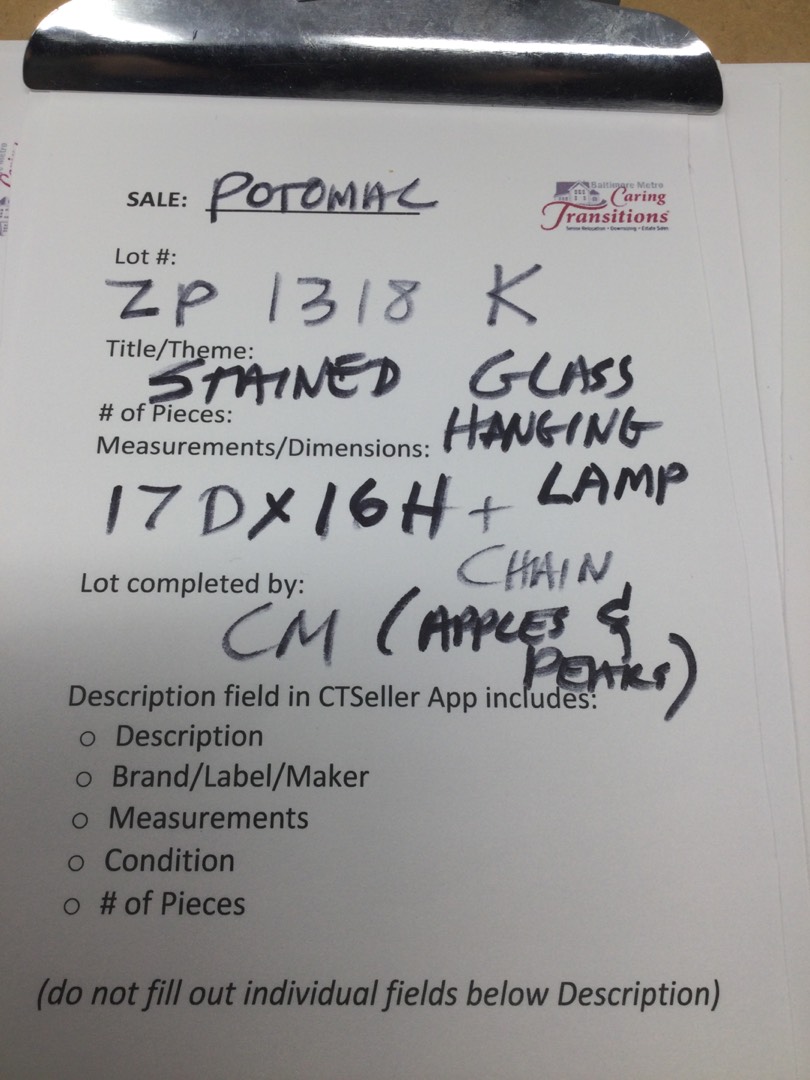 SALE: POTOMAC
Baltimore Metro
Caring
Transitions
Senior Relocation • Downsizing • Estate Sales
Lot #:
ZP 1318 K
Title/Theme:
STAINED GLASS
# of Pieces:
HANGING
Measurements/Dimensions:
LAMP
17D X 16H +
CHAIN
Lot completed by:
CM (APPLES &
PEARS)
Description field in CTSeller App includes:
o Description
o Brand/Label/Maker
o Measurements
o Condition
o # of Pieces
(do not fill out individual fields below Description)